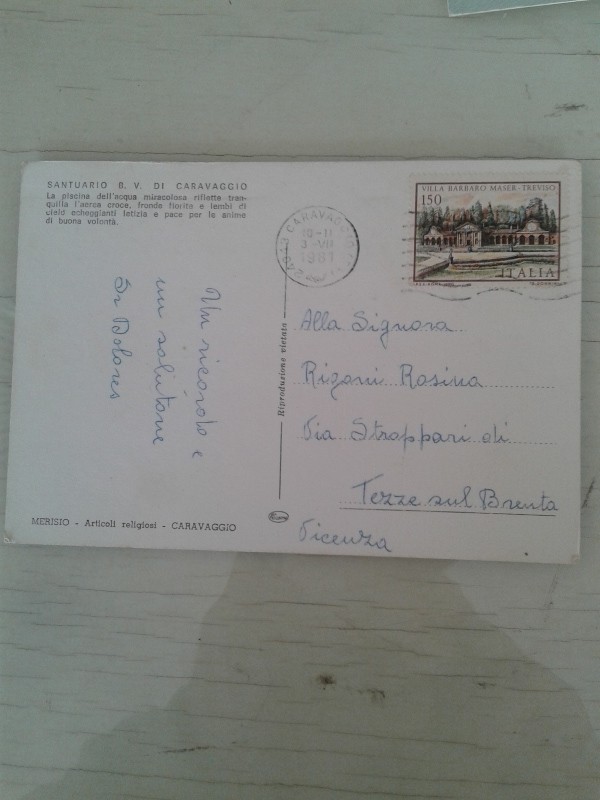 SANTUARIO B. V. DI CARAVAGGIO
La piscina dell'acqua miracolosa riflette tran-
quilla l'aerea croce, fronde fiorite e lembi di
cielo echeggianti letizia e pace per le anime
di buona volontà.
Un ricordo e
un salutone
Sr Dolores
MERISIO - Articoli religiosi - CARAVAGGIO
Riproduzione vietata
24043 CARAVAGGIO
10-11
3-VII
1981
VILLA BARBARO MASER-TREVISO
150
ITALIA
Alla Signora
Rigoni Rosina
Via Strappari di
Tezze sul Brenta
Vicenza